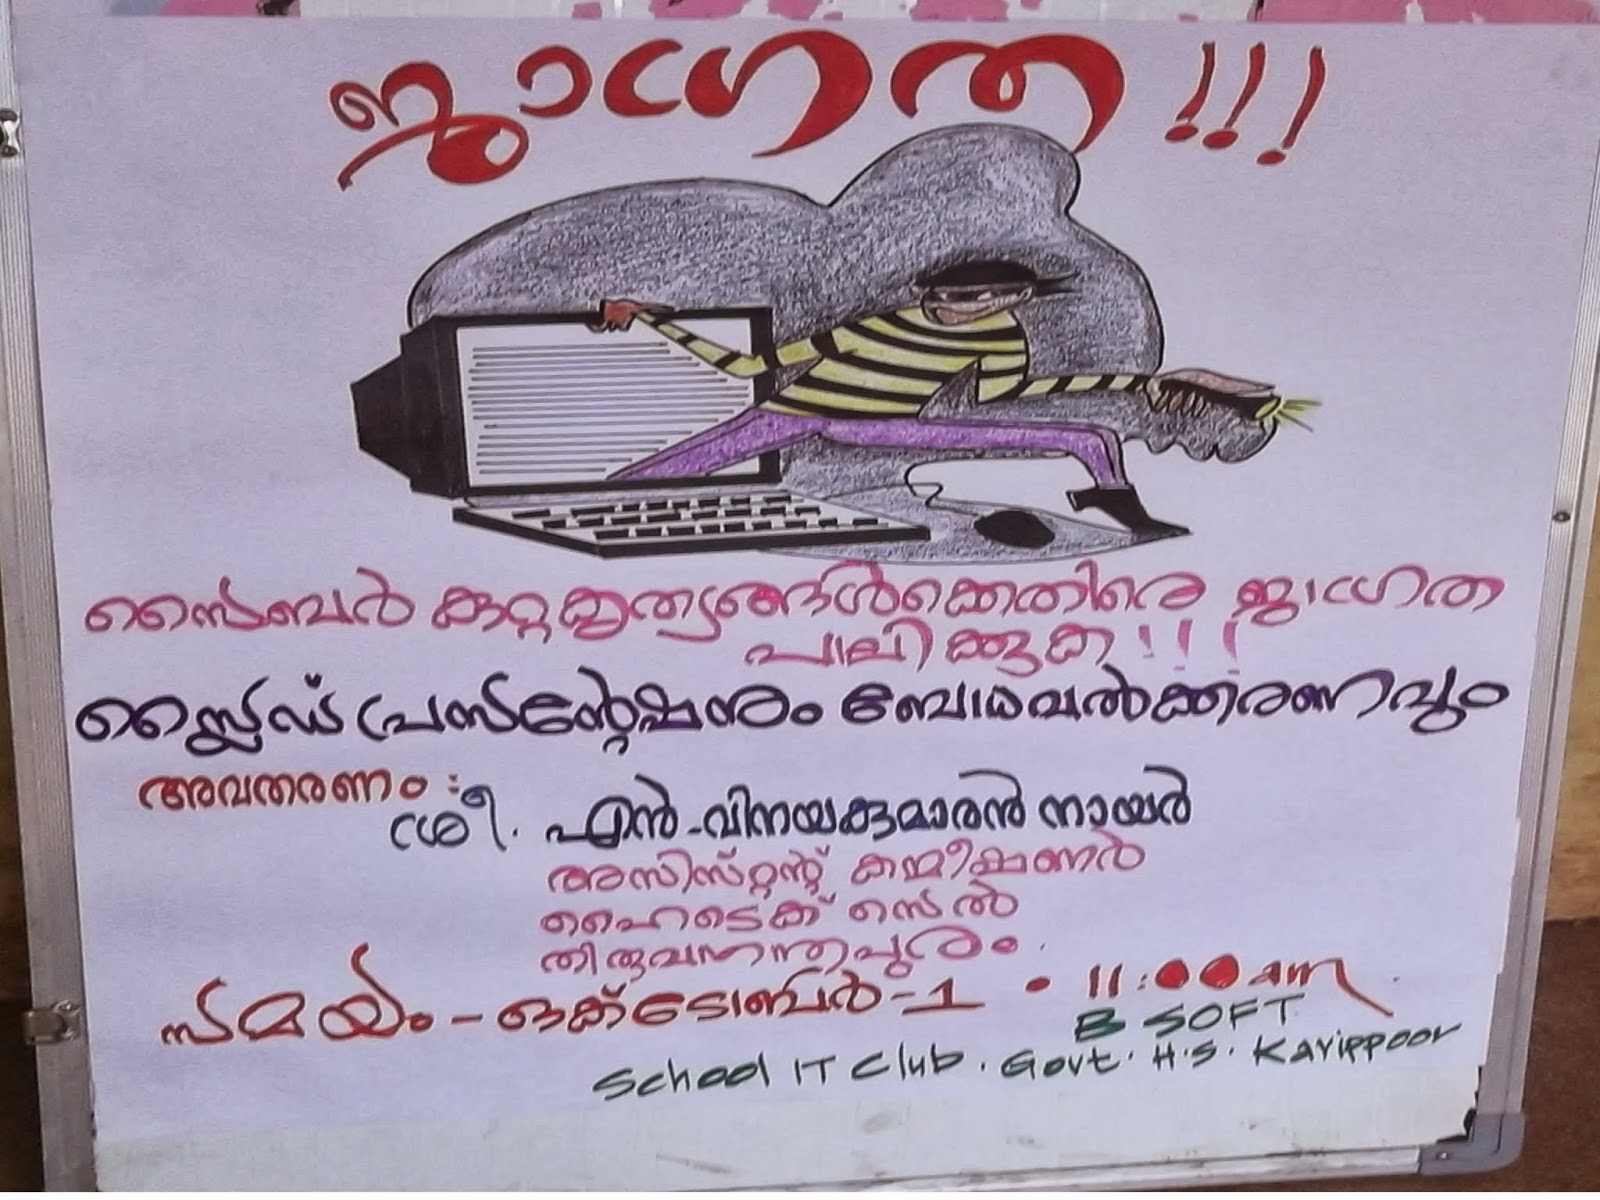 ജാഗ്രത !!!
സൈബർ കുറ്റകൃത്യങ്ങൾക്കെതിരെ ജാഗ്രത
പാലിക്കുക !!!
സ്ലൈഡ് പ്രസന്റേഷനും ബോധവൽക്കരണവും
അവതരണം :-
ശ്രീ. എൻ-വിനയകുമാരൻ നായർ
അസിസ്റ്റന്റ് കമ്മീഷണർ
ഹൈടെക് സെൽ
തിരുവനന്തപുരം.
സമയം - ഒക്ടോബർ - 1 • 11:00 am
B SOFT
School IT Club. Govt. H.S. Karippoor